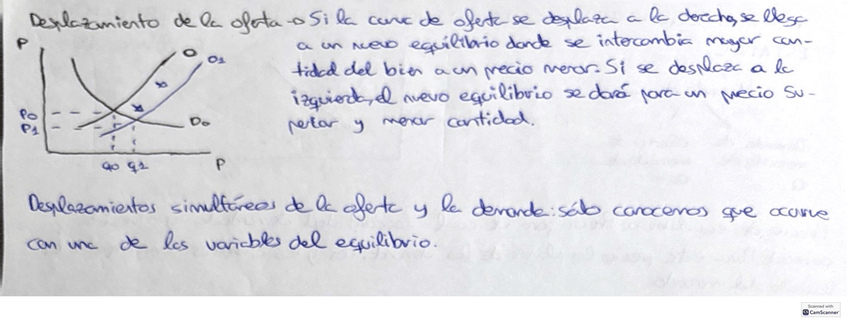 Desplazamiento de la oferta → Si la curva de oferta se desplaza a la derecha, se llega
a un nuevo equilibrio donde se intercambia mayor can-
tidad del bien a un precio menor. Si se desplaza a la
izquierda, el nuevo equilibrio se dará para un precio su-
perior y menor cantidad.
P
O
O1
P0
P1
D0
q0 q1
P
Desplazamientos simultáneos de la oferta y la demanda: sólo conocemos que ocurre
con una de las variables del equilibrio.
Scanned with
CamScanner